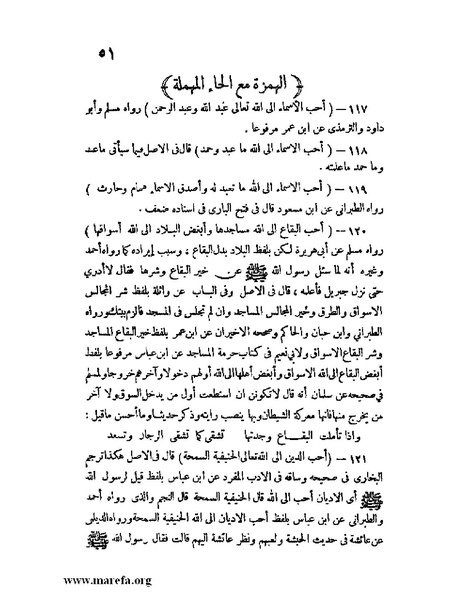 ٥١
﴿ الهمزة مع الحاء المهملة ﴾
١١٧ – ( أحب الأسماء الى الله تعالى عبد الله وعبد الرحمن ) رواه مسلم وأبو
داود والترمذى عن ابن عمر مرفوعا .
١١٨ – ( أحب الاسماء الى الله ما عبد وحمد ) قال فى الاصل فيما سيأتى ماعبد
وما حمد ماعلمته .
١١٩ – ( أحب الاسماء الى الله ما تعبد له وأصدق الاسماء همام وحارث )
رواه الطبرانى عن ابن مسعود قال فى فتح البارى فى اسناده ضعف .
١٢٠ – ( أحب البقاع الى الله مساجدها وأبغض البلاد الى الله أسواقها )
رواه مسلم عن أبى هريرة لكن بلفظ البلاد بدل البقاع ، وسبب إيراده كما رواه أحمد
وغيره أنه لما سئل رسول الله ﷺ عن خير البقاع وشرها فقال لا أدري
حتى نزل جبريل فأعلمه ، قال فى الاصل وفى الباب عن واثلة بلفظ شر المجالس
الاسواق والطرق وخير المجالس المساجد وان لم تجلس فى المسجد فالزم بيتك ورواه
الطبرانى وابن حبان والحاكم وصححه الاخيران عن ابن عمر بلفظ خير البقاع المساجد
وشر البقاع الاسواق ولابى نعيم فى كتاب حرمة المساجد عن ابن عباس مرفوعا بلفظ
أبغض البقاع الى الله الاسواق وأبغض أهلها الى الله أولهم دخولا وآخرهم خروجا ولمسلم
فى صحيحه عن سلمان أنه قال لا تكونن ان استطعت أول من يدخل السوق ولا آخر
من يخرج منها فانها معركة الشيطان وبها ينصب رايته وذكر حديثا وما أحسن ماقيل :
واذا تأملت البقاع وجدتها تشقى كما تشقى الرجال وتسعد
١٢١ – ( أحب الدين الى الله تعالى الحنيفية السمحة ) قال فى الاصل هكذا ترجم
البخارى فى صحيحه وساقه فى الادب المفرد عن ابن عباس بلفظ قيل لرسول الله
ﷺ أى الاديان أحب الى الله قال الحنيفية السمحة قال النجم والذى رواه أحمد
والطبرانى عن ابن عباس بلفظ أحب الاديان الى الله الحنيفية السمحة ورواه الديلمى
عن عائشة فى حديث الحبشة ولعبهم ونظر عائشة اليهم قالت فقال رسول الله ﷺ
www.marefa.org